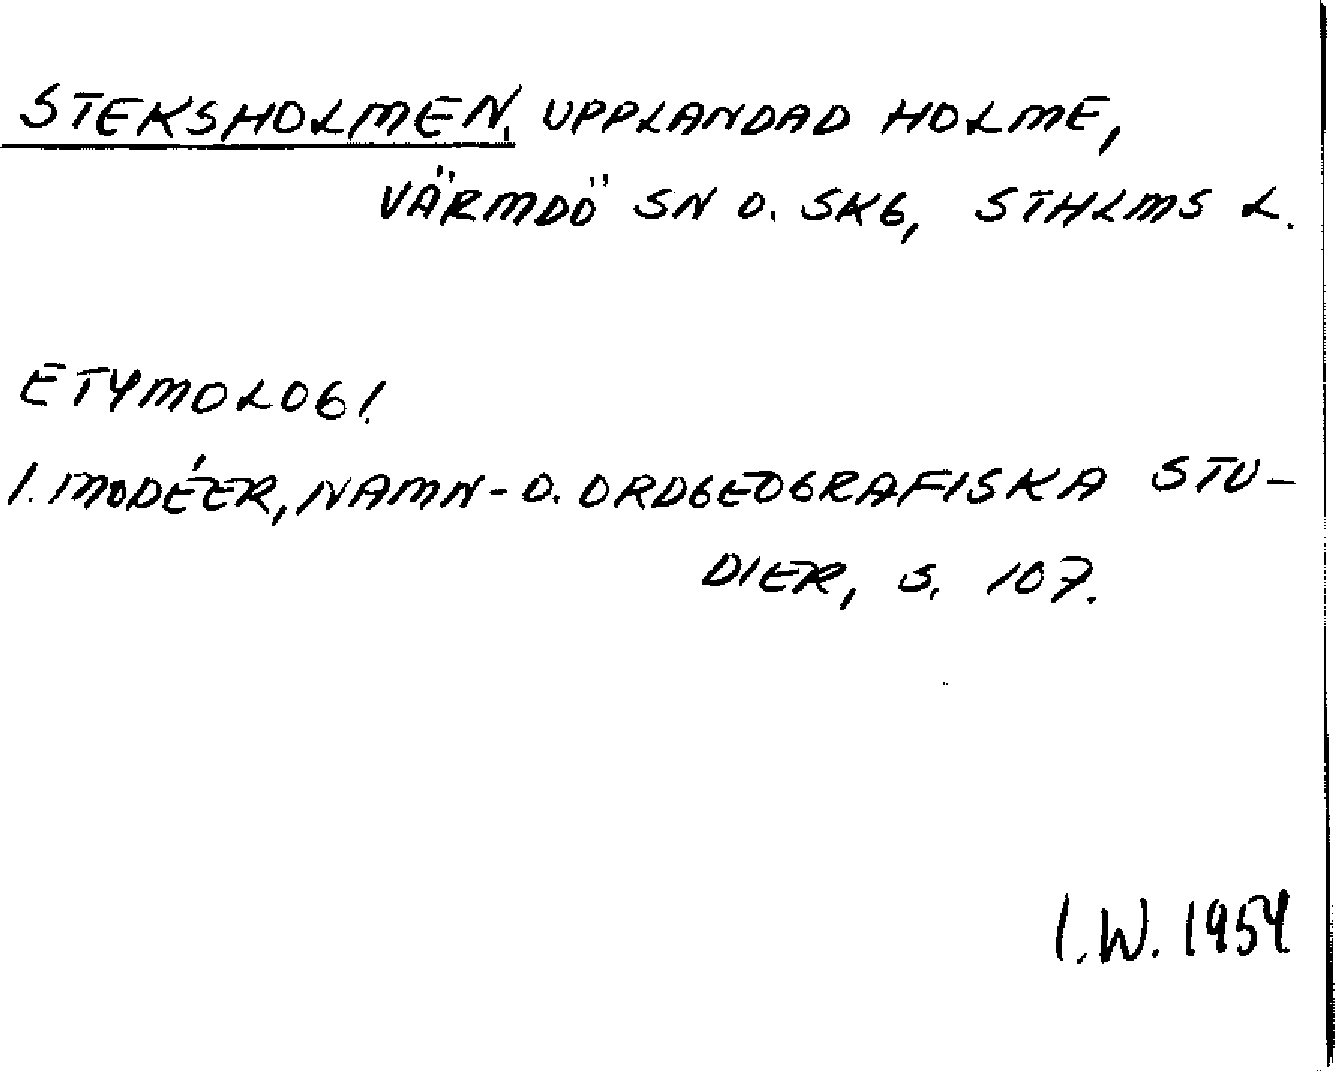 STEKSHOLMEN, UPPLANDAD HOLME,
VÄRMDÖ SN O. SKG, STHLMS L.
ETYMOLOGI.
I. MODÉER, NAMN- O. ORDGEOGRAFISKA STU-
DIER, S. 107.
I.W. 1954